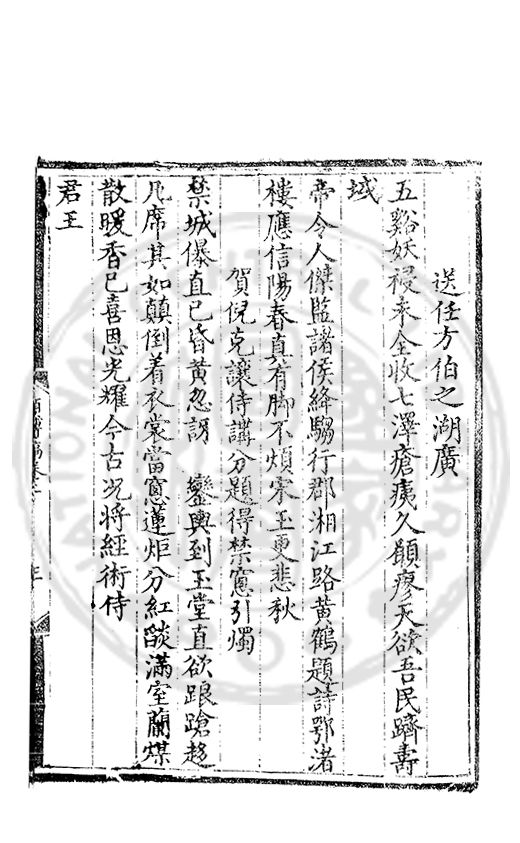 送任方伯之湖廣
五谿妖祲未全收七澤瘡痍久願瘳天欲吾民躋壽
域
帝令人傑監諸侯絳騶行郡湘江路黃鶴題詩鄂渚
樓應信陽春真有脚不煩宋玉更悲秋
賀倪克讓侍講分題得禁窻引燭
禁城儤直已昏黃忽訝 鑾輿到玉堂直欲踉蹌趍
几席其如顛倒着衣裳當窻蓮炬分紅燄滿室蘭煤
散暖香已喜恩光耀今古况將經術侍
君王